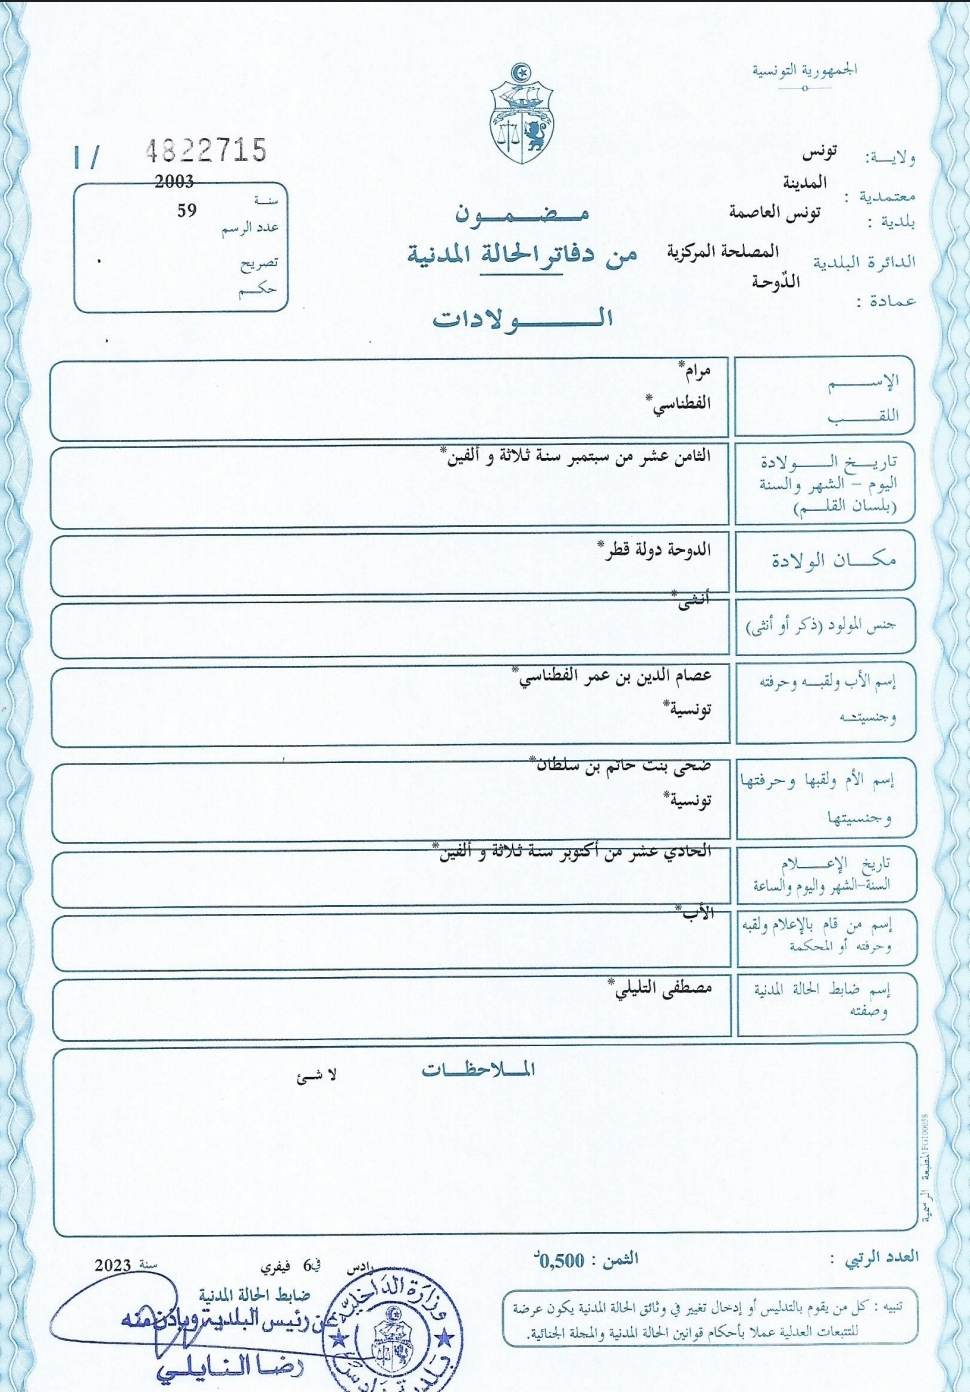 الجمهورية التونسية
ولايـــة: تونس
معتمدية : المدينة
بلدية : تونس العاصمة
الدائرة البلدية المصلحة المركزية
عمادة : الدّوحـة
I / 4822715
سنـــة 2003
عدد الرسم 59
تصريح
حكـــم
مـــضـــمـــون
من دفاتر الحالة المدنية
الـــــــولادات
الإســـــم مرام*
اللقـــب الفطناسي*
تاريـــخ الـــــولادة الثامن عشر من سبتمبر سنة ثلاثة و ألفين*
اليوم – الشهر والسنة
(بلسان القلـــم)
مكـــان الولادة الدوحة دولة قطر*
جنس المولود (ذكر أو أنثى) أنثى*
إسم الأب ولقبـــه وحرفته عصام الدين بن عمر الفطناسي*
وجنسيتـــه تونسية*
إسم الأم ولقبها وحرفتها ضحى بنت حاتم بن سلطان*
وجنسيتها تونسية*
تاريخ الإعـــــلام الحادي عشر من أكتوبر سنة ثلاثة و ألفين*
السنة-الشهر واليوم والساعة
إسم من قام بالإعلام ولقبه الأب*
وحرفته أو المحكمة
إسم ضابط الحالة المدنية مصطفى التليلي*
وصفته
المـــلاحظـــات
لا شـئ
المطبعة الرسمية
العدد الرتبي :
الثمن : 0,500د
رادس في 6 فيفري سنة 2023
ضابط الحالة المدنية
عن رئيس البلدية وبإذن منه
رضـا الـنـايـلـي
وزارة الداخلية
بلدية رادس
تنبيه : كل من يقوم بالتدليس أو إدخال تغيير في وثائق الحالة المدنية يكون عرضة
للتتبعات العدلية عملا بأحكام قوانين الحالة المدنية والمجلة الجنائية.